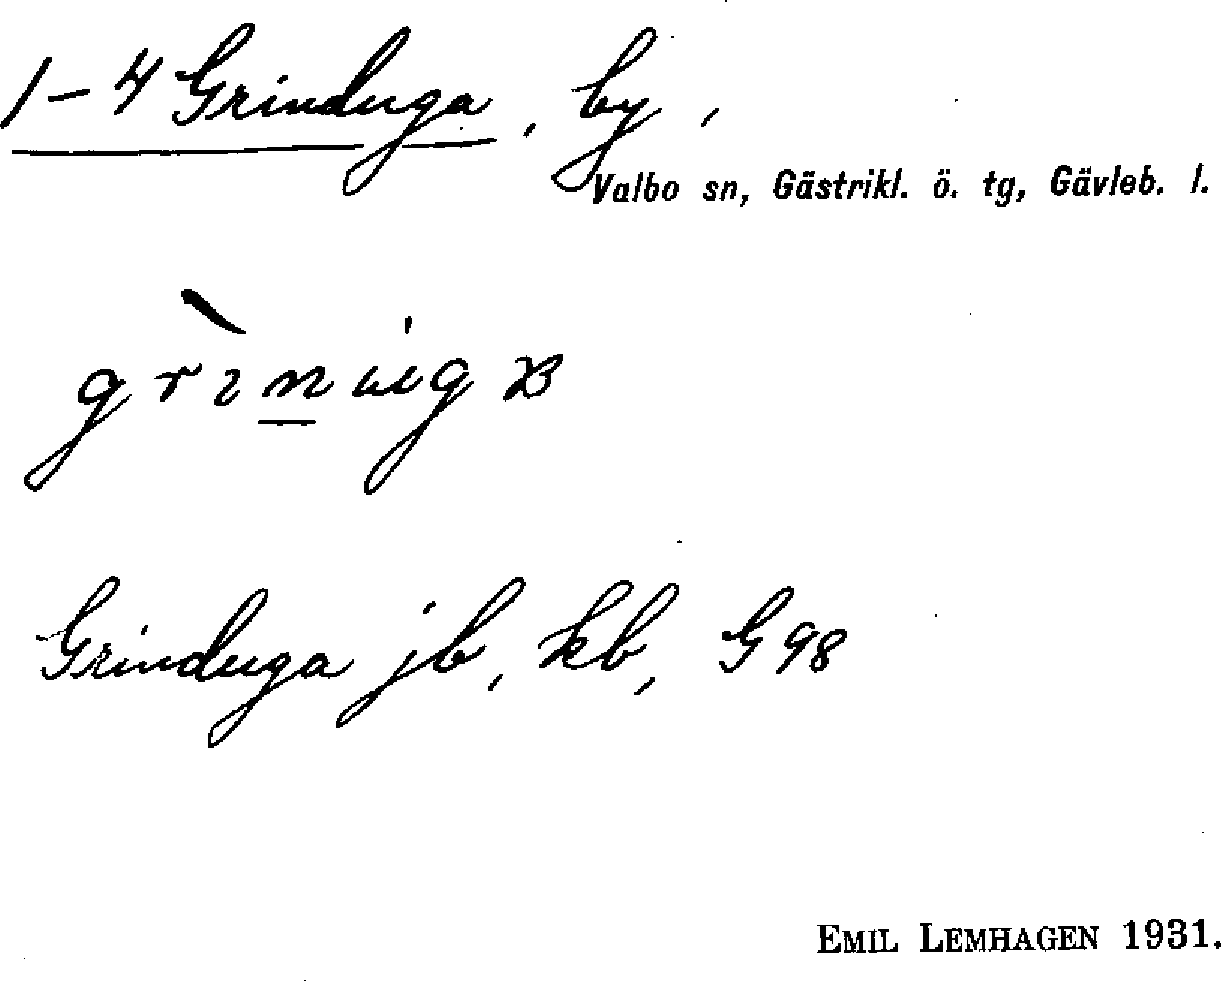 1-4 Grinduga, by,
Valbo sn, Gästrikl. ö. tg, Gävleb. l.
Grinduga jb, kb, G 98
EMIL LEMHAGEN 1931.